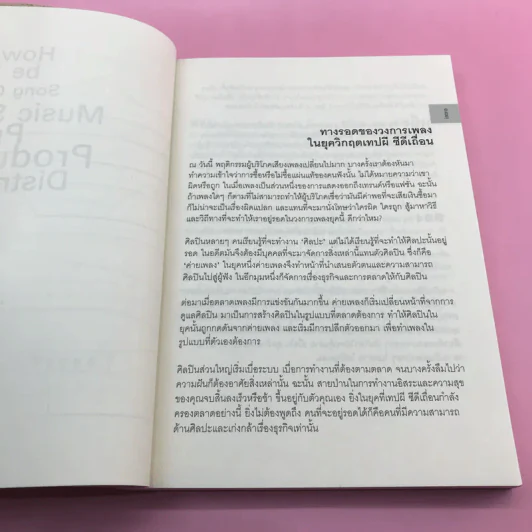 How
be
Song
Music S
P
Produ
Distr
ทางรอดของวงการเพลง
ในยุควิกฤตเทปผี ซีดีเถื่อน
ณ วันนี้ พฤติกรรมผู้บริโภคเสียงเพลงเปลี่ยนไปมาก บางครั้งเราต้องหันมา
ทำความเข้าใจว่าการซื้อหรือไม่ซื้อแผ่นแท้ของคนฟังนั้น ไม่ได้หมายความว่าเขา
ผิดหรือถูก ในเมื่อเพลงเป็นส่วนหนึ่งของการแสดงออกถึงเทรนด์หรือแฟชั่น ฉะนั้น
ถ้าเพลงใดๆ ก็ตามที่ไม่สามารถทำให้ผู้บริโภคเชื่อว่ามันมีค่าพอที่จะเสียเงินซื้อมา
ก็ไม่น่าจะเป็นเรื่องผิดแปลก และแทนที่จะมานั่งโทษว่าใครผิด ใครถูก สู้มาหาวิธี
และวิถีทางที่จะทำให้เราอยู่รอดในวงการเพลงยุคนี้ ดีกว่าไหม?
ศิลปินหลายๆ คนเรียนรู้ที่จะทำงาน 'ศิลปะ' แต่ไม่ได้เรียนรู้ที่จะทำให้ศิลปะนั้นอยู่
รอด ในอดีตมันจึงต้องมีบุคคลที่จะมาจัดการสิ่งเหล่านี้แทนตัวศิลปิน ซึ่งก็คือ
'ค่ายเพลง' ในยุคหนึ่งค่ายเพลงจึงทำหน้าที่นำเสนอตัวตนและความสามารถ
ศิลปินไปสู่ผู้ฟัง ในอีกมุมหนึ่งก็จัดการเรื่องธุรกิจและการตลาดให้กับศิลปิน
ต่อมาเมื่อตลาดเพลงมีการแข่งขันกันมากขึ้น ค่ายเพลงก็เริ่มเปลี่ยนหน้าที่จากการ
ดูแลศิลปิน มาเป็นการสร้างศิลปินในรูปแบบที่ตลาดต้องการ ทำให้ศิลปินใน
ยุคนั้นถูกกดดันจากค่ายเพลง และเริ่มมีการปลีกตัวออกมา เพื่อทำเพลงใน
รูปแบบที่ตัวเองต้องการ
ศิลปินส่วนใหญ่เริ่มเบื่อระบบ เบื่อการทำงานที่ต้องตามตลาด จนบางครั้งลืมไปว่า
ความฝันก็ต้องอาศัยสิ่งเหล่านั้น ฉะนั้น สายป่านในการทำงานอิสระและความสุข
ของคุณจบสิ้นลงเร็วหรือช้า ขึ้นอยู่กับตัวคุณเอง ยิ่งในยุคที่เทปผี ซีดีเถื่อนกำลัง
ครองตลาดอย่างนี้ ยิ่งไม่ต้องพูดถึง คนที่จะอยู่รอดได้ก็คือคนที่มีความสามารถ
ด้านศิลปะและเก่งกล้าเรื่องธุรกิจเท่านั้น